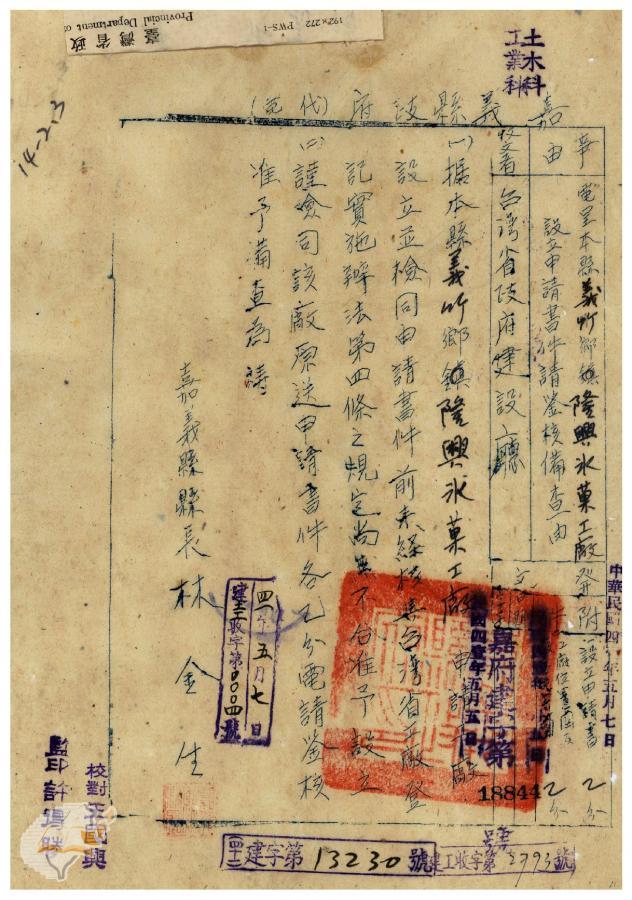 土木科
工業科
192×272 PWS-1
Provincial Department of
臺灣省政
14-2.3
嘉義縣政府（代電）
事由
電呈本縣義竹鄉鎮隆興氷菓工廠
設立申請書件請鋻核備查由
附設立申請書乙分
工廠位置圖乙分
受文者
台灣省政府建設廳
中華民國四十一年五月七日
中華民國四壹年五月五日
嘉府建字第
18844
號
㈠據本縣義竹鄉鎮隆興氷菓工廠申請工廠
設立並檢同申請書件前來經核與台灣省工廠登
記實施辦法第四條之規定尚無不合准予設立
㈡謹檢同該廠原送申請書件各乙分電請鋻核
准予備查為禱
嘉義縣縣長林金生
四一年五月七日
建工收字第0004號
校對王國興
監印許得時
四十一建字第13230號
建工收字第2793號